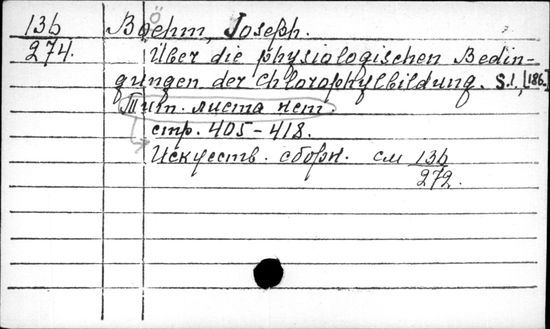 13b Boehm, Joseph.
274. Über die physiologischen Bedin-
gungen der Chlorophylbildung. S.l., [186.]
Тит. листа нет.
стр. 405-418.
Искусств. сборн. см 13b
272.